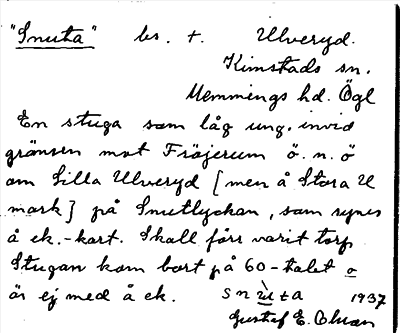 "Snuta" bs. t. Ulveryd.
Kimstads sn.
Memmings hd. Ögl
En stuga som låg ung. invid
gränsen mot Fröjerum ö. n. ö
om Lilla Ulveryd [men å Stora U
mark] på Snutlyckan, som synes
å ek.-kart. Skall förr varit torp
Stugan kom bort på 60-talet o
är ej med å ek. snùta 1937
Gustaf E. Olson